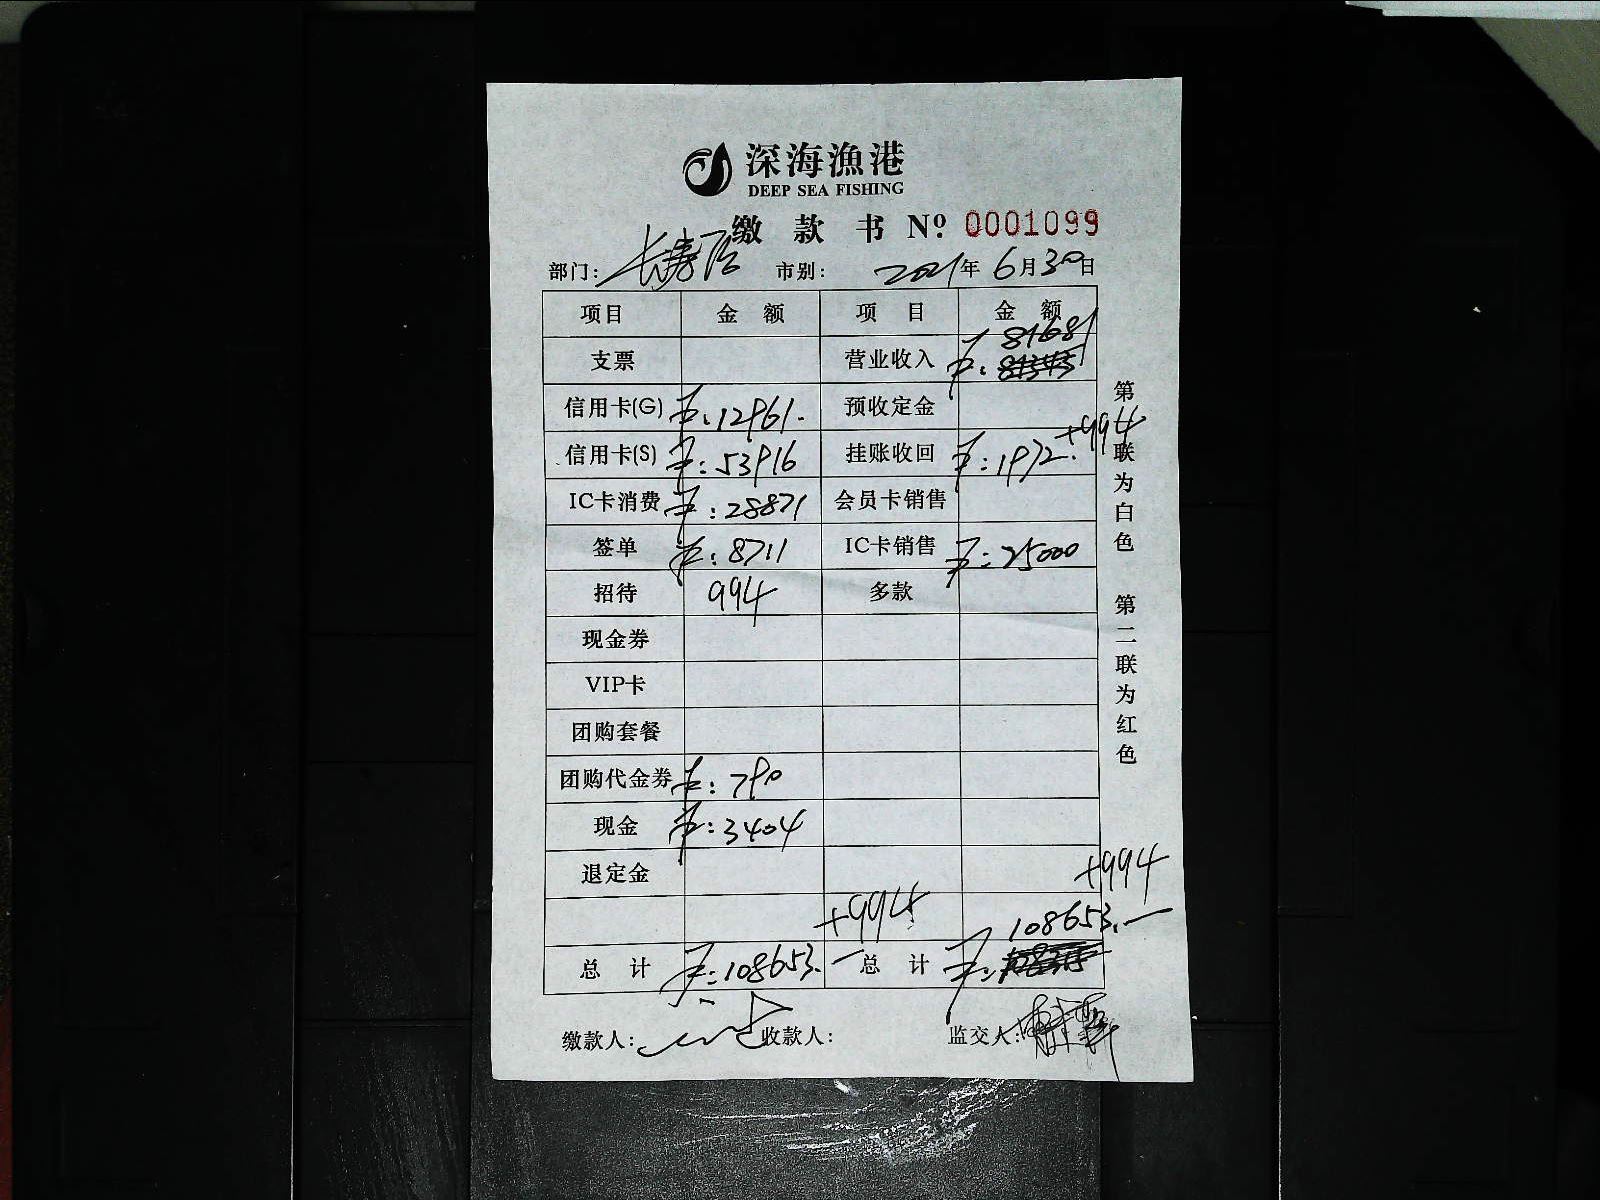 深海漁港
DEEP SEA FISHING
缴款书 Nº: 0001099
部门: 长寿店 市别: 2021年6月30日
项目 金额 项目 金额
支票 营业收入 ￥: 81681
信用卡(G) ￥: 12961. 预收定金
+994
信用卡(S) ￥: 53916 挂账收回 ￥: 1972.
IC卡消费 ￥: 28871 会员卡销售
签单 ￥: 8711 IC卡销售 ￥: 25000
招待 994 多款
现金券
VIP卡
团购套餐
团购代金券 ￥: 790
现金 ￥: 3404
退定金 +994
+994
总计 ￥: 108653.— 总计 ￥: 108653.—
缴款人: 收款人: 监交人:
第一联为白色 第二联为红色